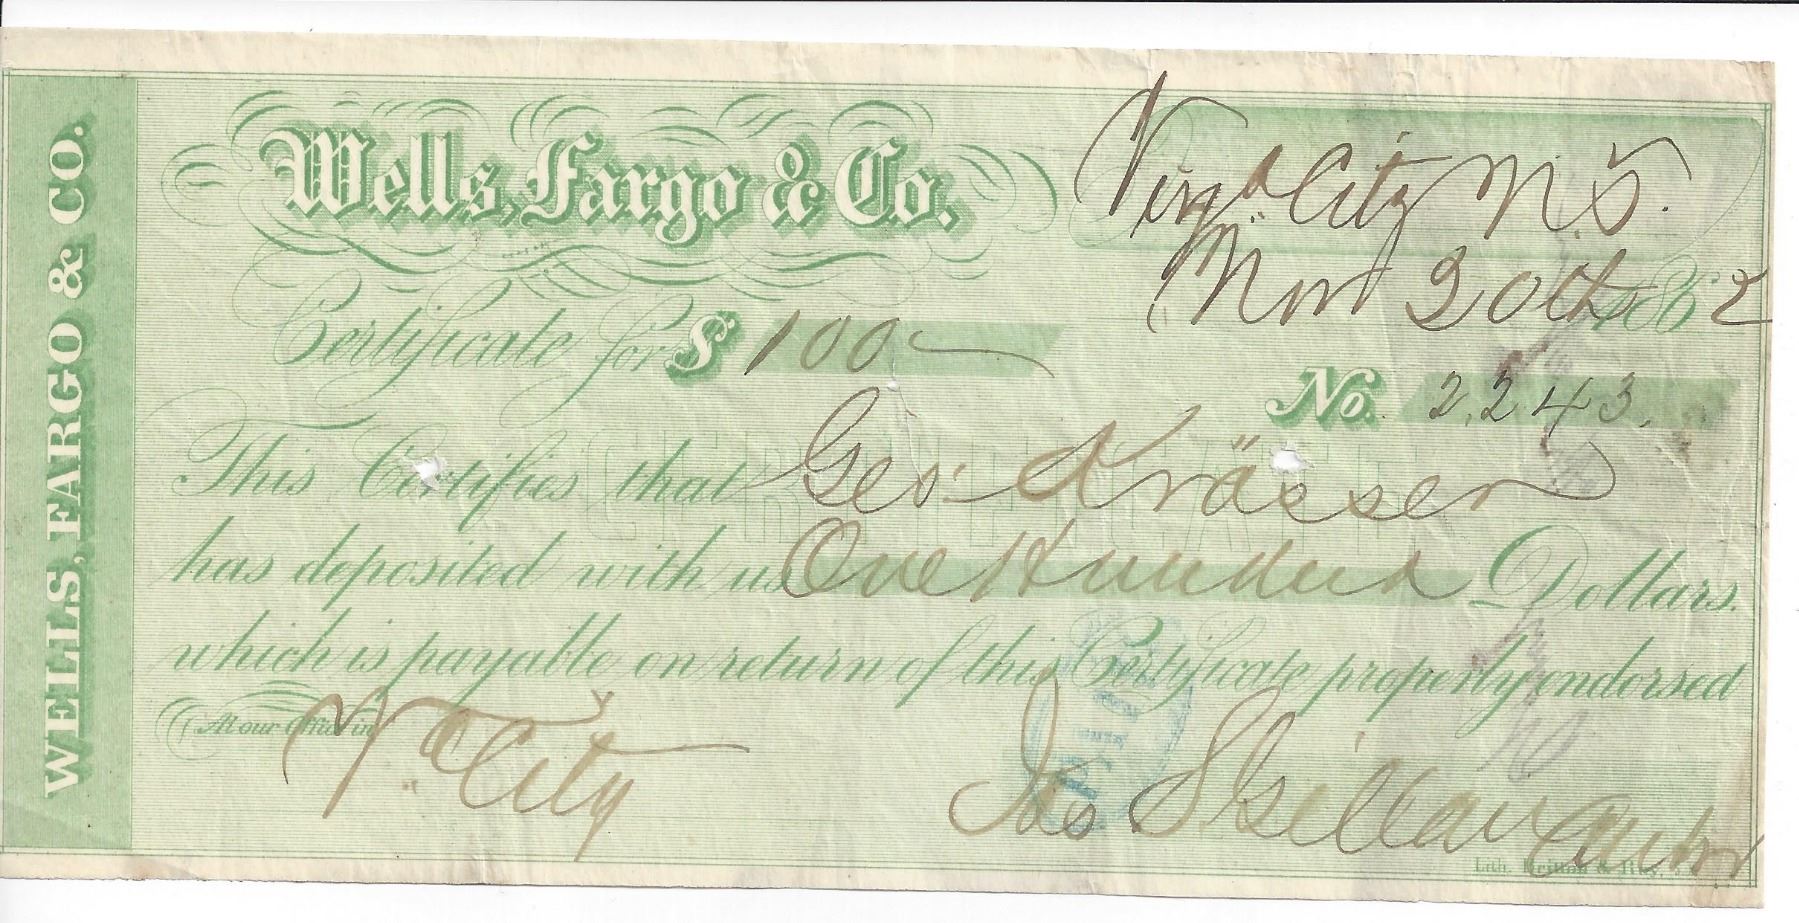 WELLS, FARGO & CO.
Wells, Fargo & Co.
Virga City N.S.
Nov 20th 1862
Certificate for $ 100
No. 2,243.
This Certifies that Geo: Krässer
CERTIFICATE
has deposited with us One Hundred Dollars.
which is payable on return of this Certificate properly endorsed
At our Office in Va City
PAID
Jas
Lith. Britton & Rey